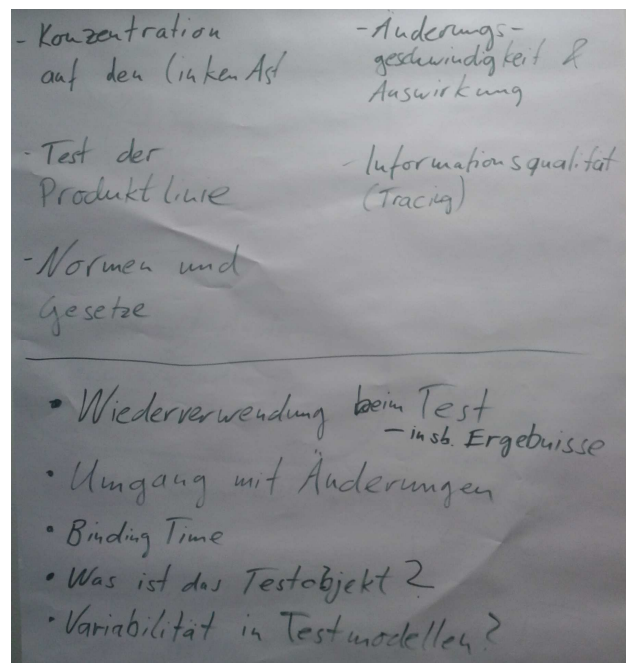 - Konzentration
auf den linken Ast
- Test der
Produktlinie
- Normen und
Gesetze
- Änderungs-
geschwindigkeit &
Auswirkung
- Informationsqualität
(Tracing)
• Wiederverwendung beim Test
- insb. Ergebnisse
• Umgang mit Änderungen
• Binding Time
• Was ist das Testobjekt?
• Variabilität in Testmodellen?